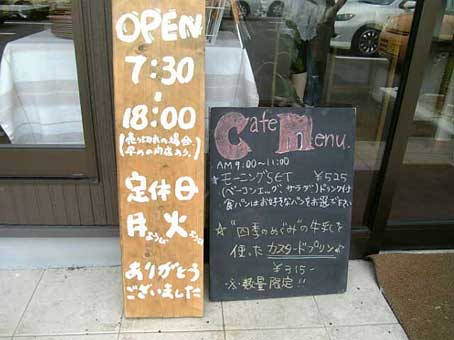 OPEN
7:30
18:00
(売り切れの場合
早めの閉店あり)
定休日
月ようび 火ようび
ありがとう
ございました
Cafe Menu.
AM 9:00〜11:00
★モーニングSET ¥525
(ベーコンエッグ、サラダ)ドリンク付
食パンはお好きなパンをお選び下さい
☆"四季のめぐみ"の牛乳を
使った カスタードプリン
¥315-
※数量限定!!